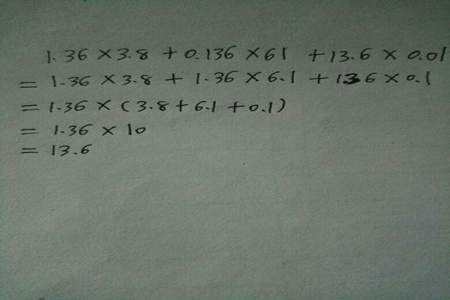 1.36 × 3.8 + 0.136 × 61 + 13.6 × 0.01
= 1.36 × 3.8 + 1.36 × 6.1 + 1.36 × 0.1
= 1.36 × (3.8 + 6.1 + 0.1)
= 1.36 × 10
= 13.6